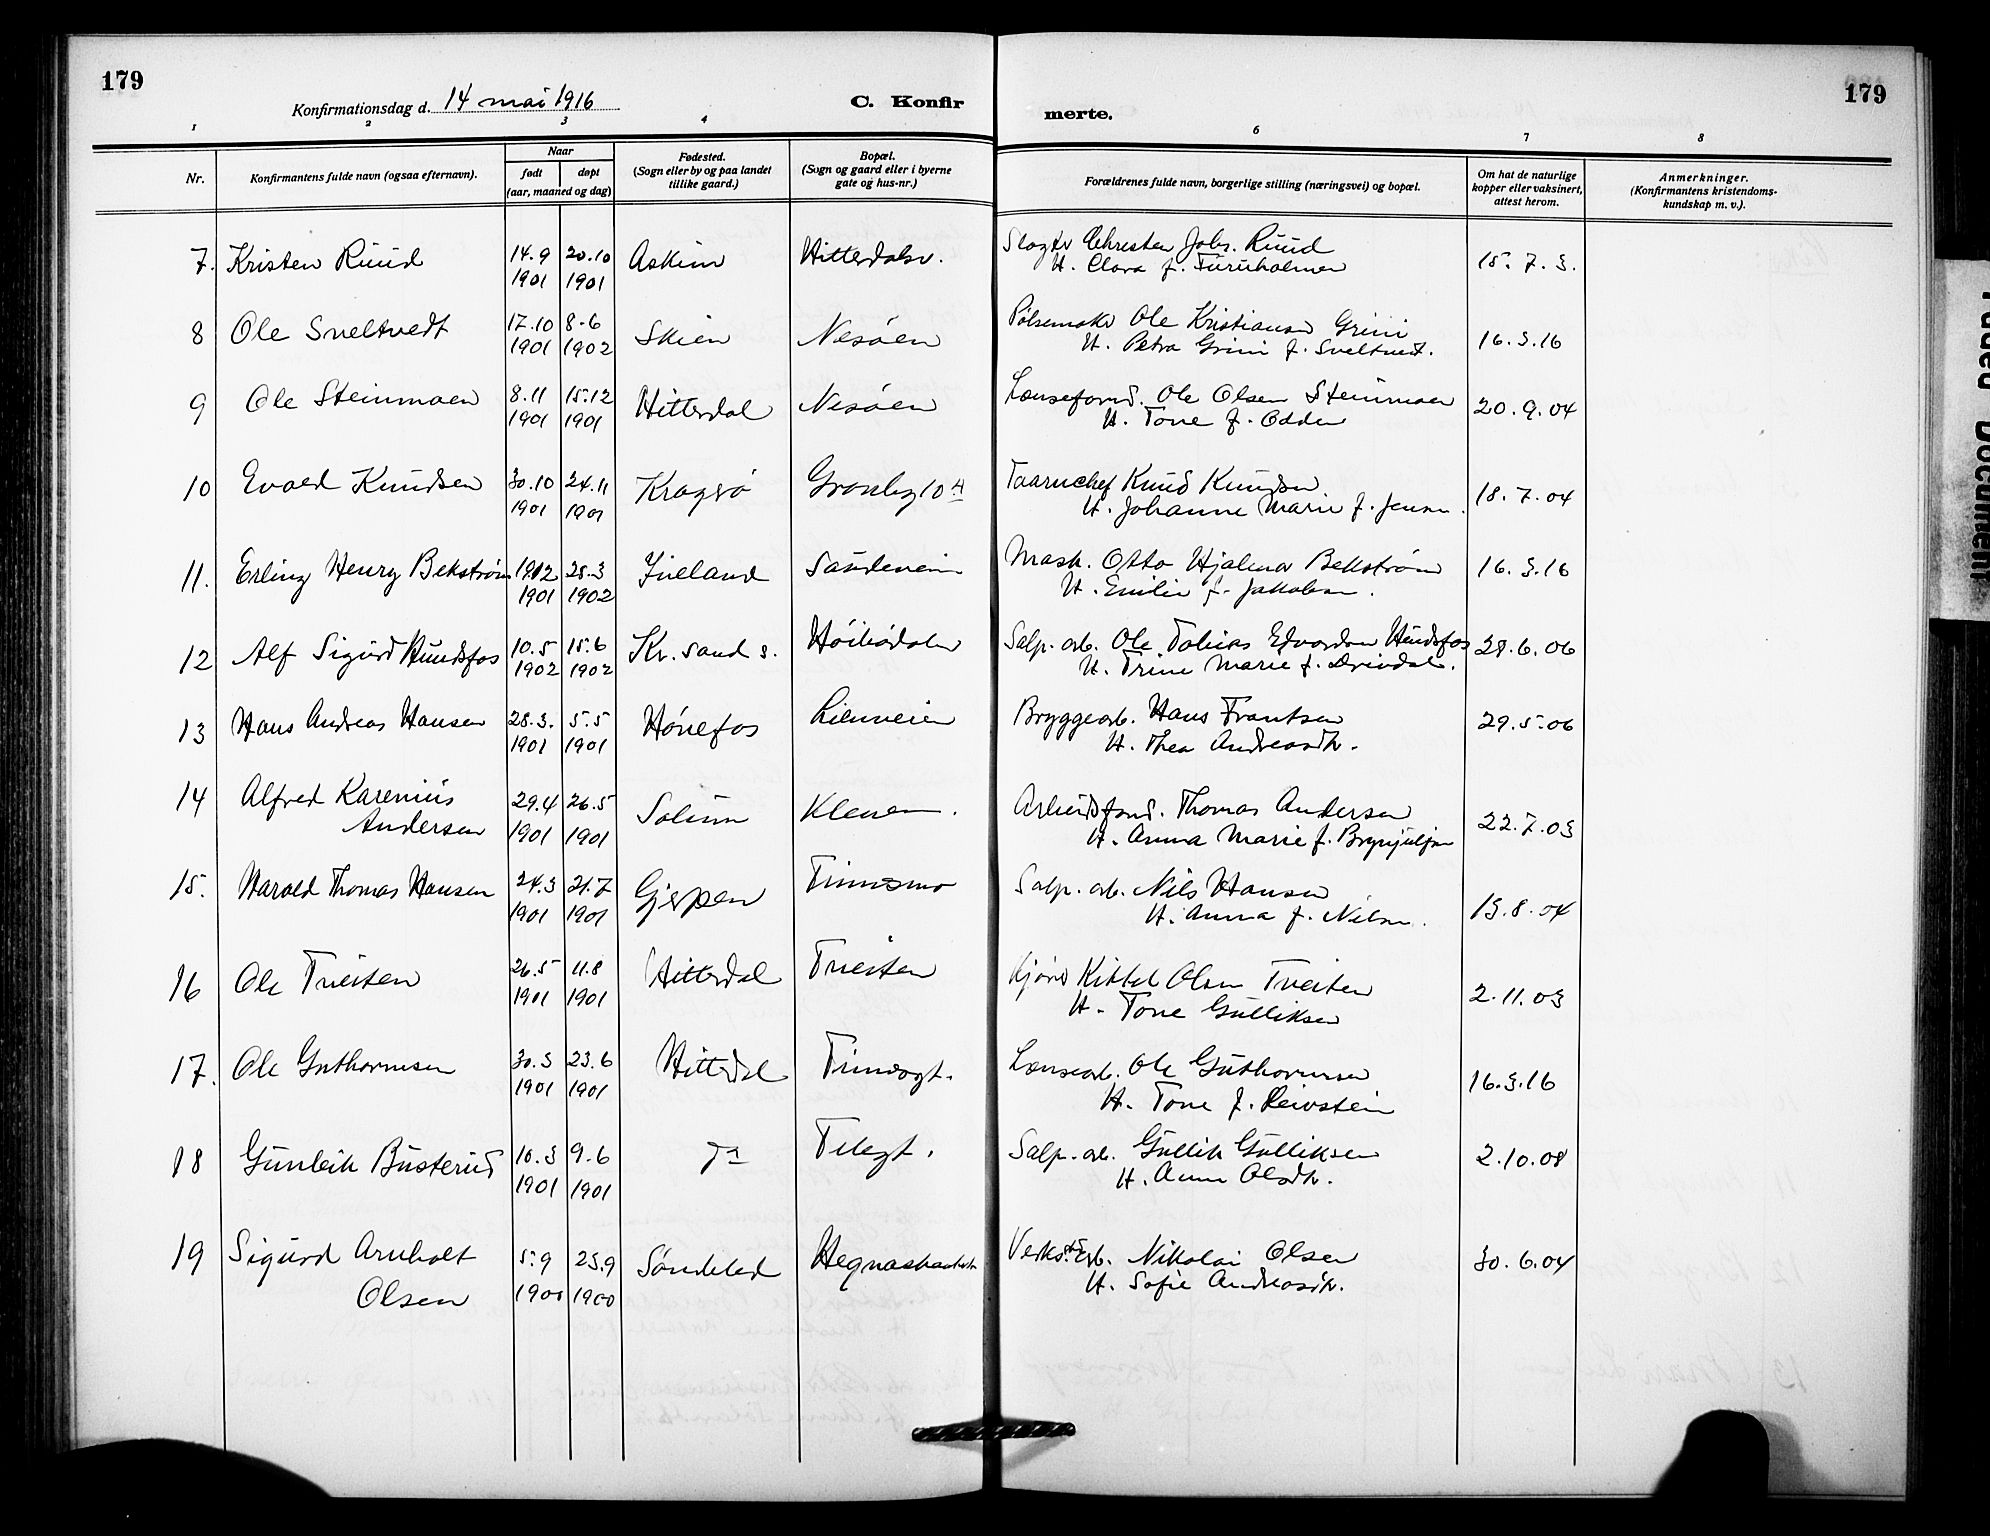 179
Konfirmationsdag d. 14 mai 1916
C. Konfir
merte.
179
1 2 3 4 6 7 8
Nr.
Konfirmantens fulde navn (ogsaa efternavn).
Naar
født døpt
(aar, maaned og dag)
Fødested.
(Sogn eller by og paa landet
tillike gaard.)
Bopæl.
(Sogn og gaard eller i byerne
gate og hus-nr.)
Forældrenes fulde navn, borgerlige stilling (næringsvei) og bopæl.
Om hat de naturlige
kopper eller vaksinert,
attest herom.
Anmerkninger.
(Konfirmantens kristendoms-
kundskap m. v.).
7. Kristen Ruud 14.9 20.10 Askim Hitterdalsv. Slagter Christen Johs. Ruud 15.7.3.
1901 1901 H. Clara f. Furuholmen
8 Ole Sneltvedt 17.10 8-6 Skien Nesøen Pølsemaker Ole Kristiansen Grini 16.3.16
1901 1902 H. Petra Grini f. Sneltvedt.
9 Ole Steinmoen 8.11 15.12 Hitterdal Nesøen Lenseformd. Ole Olsen Steinmoen 20.9.04
1901 1901 H. Tone f. Odden
10 Evald Knudsen 30.10 24.11 Kragerø Grønbyg 10 A Taarnchef Knud Knudsen 18.7.04
1901 1901 H. Johanne Marie f. Jensen.
11. Erling Henry Bekstrøm 19.12 25.3 Froland Sandeveien Mask. Otto Hjalmar Bekstrøm 16.3.16
1901 1902 H. Emilie f. Jakobsen.
12 Alf Sigurd Hundsfos 10.5 15.6 Kr.sand s. Høibødalen Salp. arb. Ole Tobias Edvardsen Hundsfos 28.6.06
1902 1902 H. Trine Marie f.
13 Hans Andreas Hansen 28.3. 5.5 Hønefos Lienveien Bryggearb. Hans Frantsen 29.5.06
1901 1901 H. Thea Andreasdtr.
14 Alfred Karenius 29.4 26.5 Solum Kleven. Arbeidsfmd. Thomas Andersen 22.7.03
Andersen 1901 1901 H. Anna Marie f. Brynjulfsen
15. Harald Thomas Hansen 24.3 21.7 Gjerpen Tinnesmo Salp. arb. Nils Hansen 13.8.04
1901 1901 H. Anna f. Nilsen.
16 Ole Tveiten 26.5 11.8 Hitterdal Tveiten Kjørek. Kittel Olsen Tveiten 2.11.03
1901 1901 H. Tone Gulliksen
17. Ole Guthormsen 30.3 23.6 Hitterdal Tinnegt. Lensearb. Ole Guthormsen 16.3.16
1901 1901 H. Tone f. Reivstein
18 Gunleik Busterud 10.3 9.6 da Telegt. Salp. arb. Gullik Gulliksen 2.10.08
1901 1901 H. Anne Olsdtr.
19 Sigurd Arnholt 5.9 23.9 Søndeled Hegnasbakken Verkst.arb. Nikolai Olsen 30.6.04
Olsen 1900 1900 H. Sofie Andreasdtr.
Faded Document